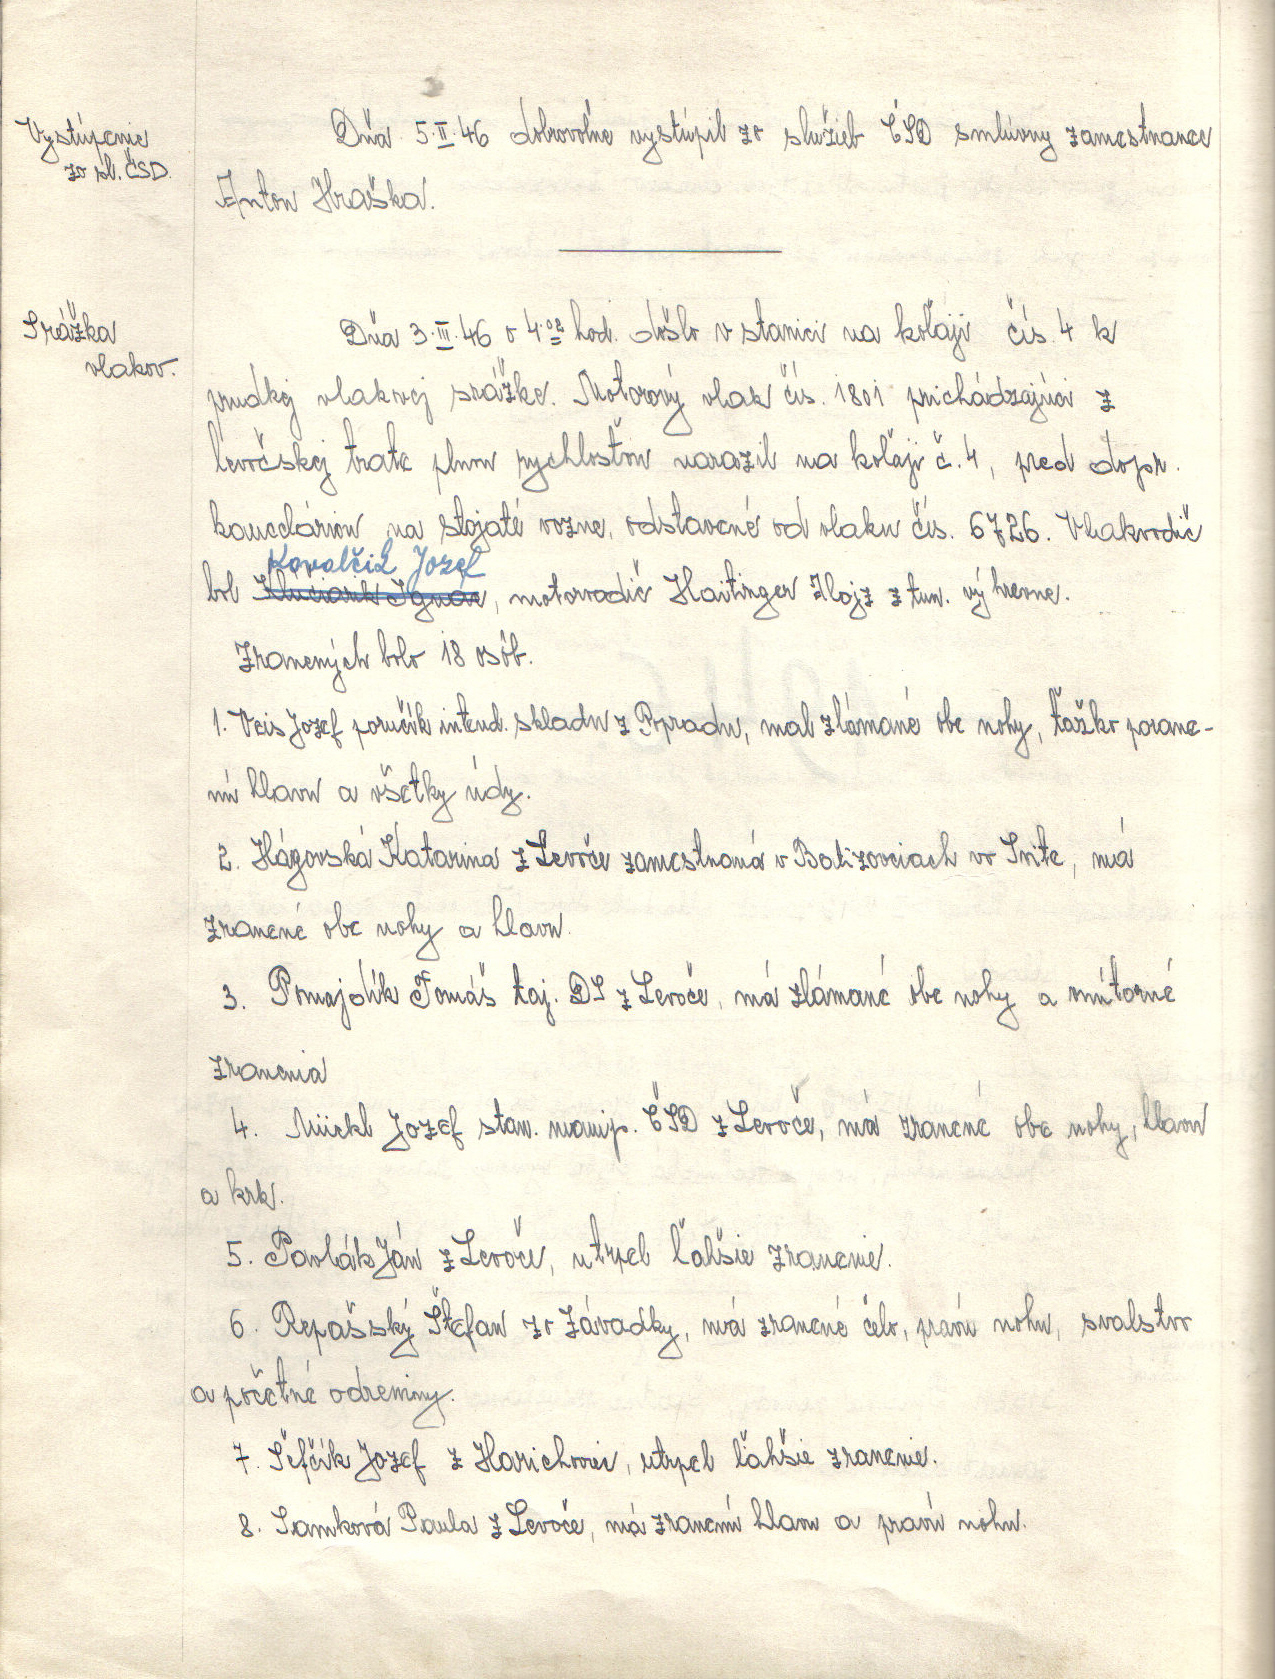 Vystúpenie
zo sl. ČSD.
Dňa 5.II.46 dobrovolne vystúpil zo služieb ČSD smlúvny zamestnanec
Anton Hraška.
Srážka
vlakov.
Dňa 3.III.46 o 4.02 hod. došlo v stanici na koľaji čís. 4 k
prudkej vlakovej srážke. Motorový vlak čís. 1801 prichádzajúci z
levočskej trate plnou rychlosťou narazil na koľaji č. 4, pred dopr.
kanceláriou na stojaté vozne, odstavené od vlaku čís. 6726. Vlakvodič
Kovalčik Jozef
bol Kluciarik Ignác, motorvodič Haitinger Alojz z tun. výhrevne.
Zranených bolo 18 osôb.
1. Veis Jozef poručík intend. skladu z Popradu, mal zlámané obe nohy, ťažko porane-
nú hlavu a všetky údy.
2. Hágovská Katarina z Levoče zamestnaná v Batizovciach vo Svite, má
zranené obe nohy a hlavu.
3. Pomajdík Tomáš taj. DS z Levoče, má zlámané obe nohy a vnútorné
zranenia
4. Jozef stan. manip. ČSD z Levoče, má zranené obe nohy, hlavu
a krk.
5. Pavlák Ján z Levoče, utrpel ľahšie zranenie.
6. Repašský Štefan zo Závadky, má zranené čelo, pravú nohu, svalstvo
a početné odreniny.
7. Šefčík Jozef z Harichovci, utrpel ľahšie zranenie.
8. Samková Paula z Levoče, má zranenú hlavu a pravú nohu.